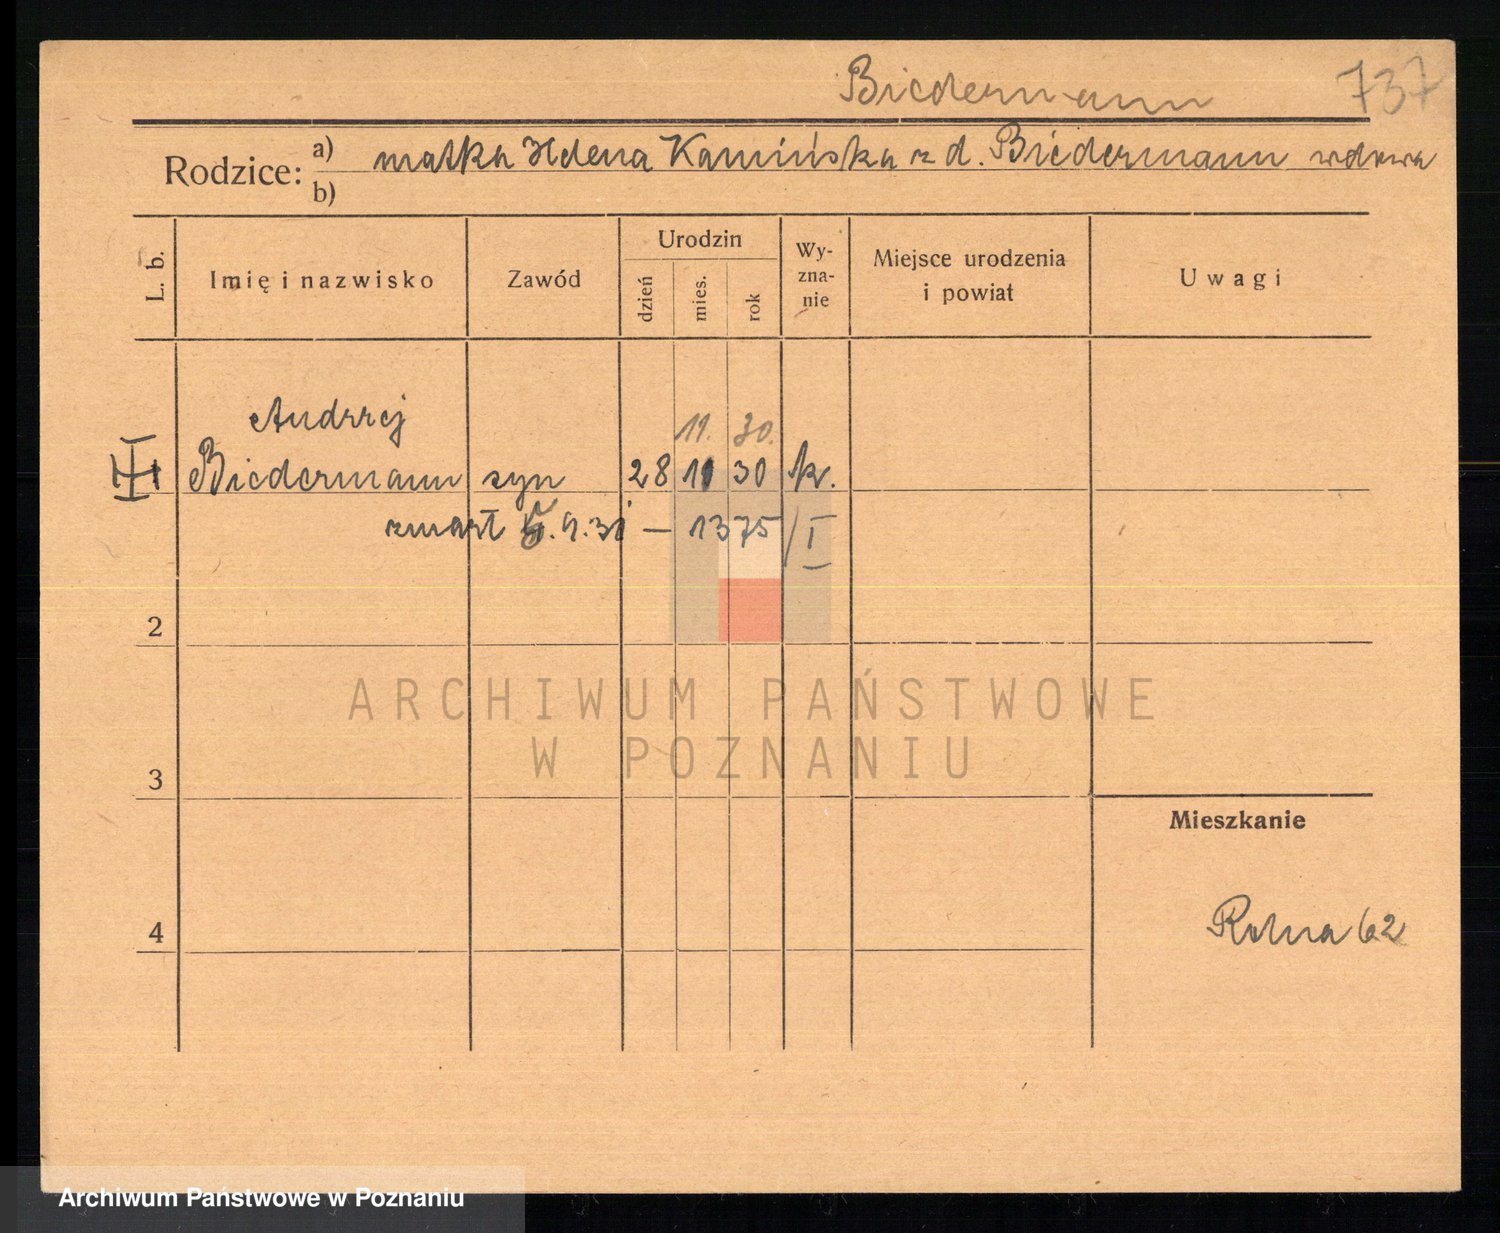 Biedermann 737
Rodzice: a) matka Helena Kamińska z d. Biedermann wdowa
b)
L. b.
Imię i nazwisko
Zawód
Urodzin
dzień
mies.
rok
Wy-
zna-
nie
Miejsce urodzenia
i powiat
Uwagi
Andrzej 11. 30.
Biedermann syn 28 11 30 k.
zmarł 5. 9. 31 — 1375/I
2
3
4
Mieszkanie
Rolna 62
ARCHIWUM PAŃSTWOWE
W POZNANIU
Archiwum Państwowe w Poznaniu